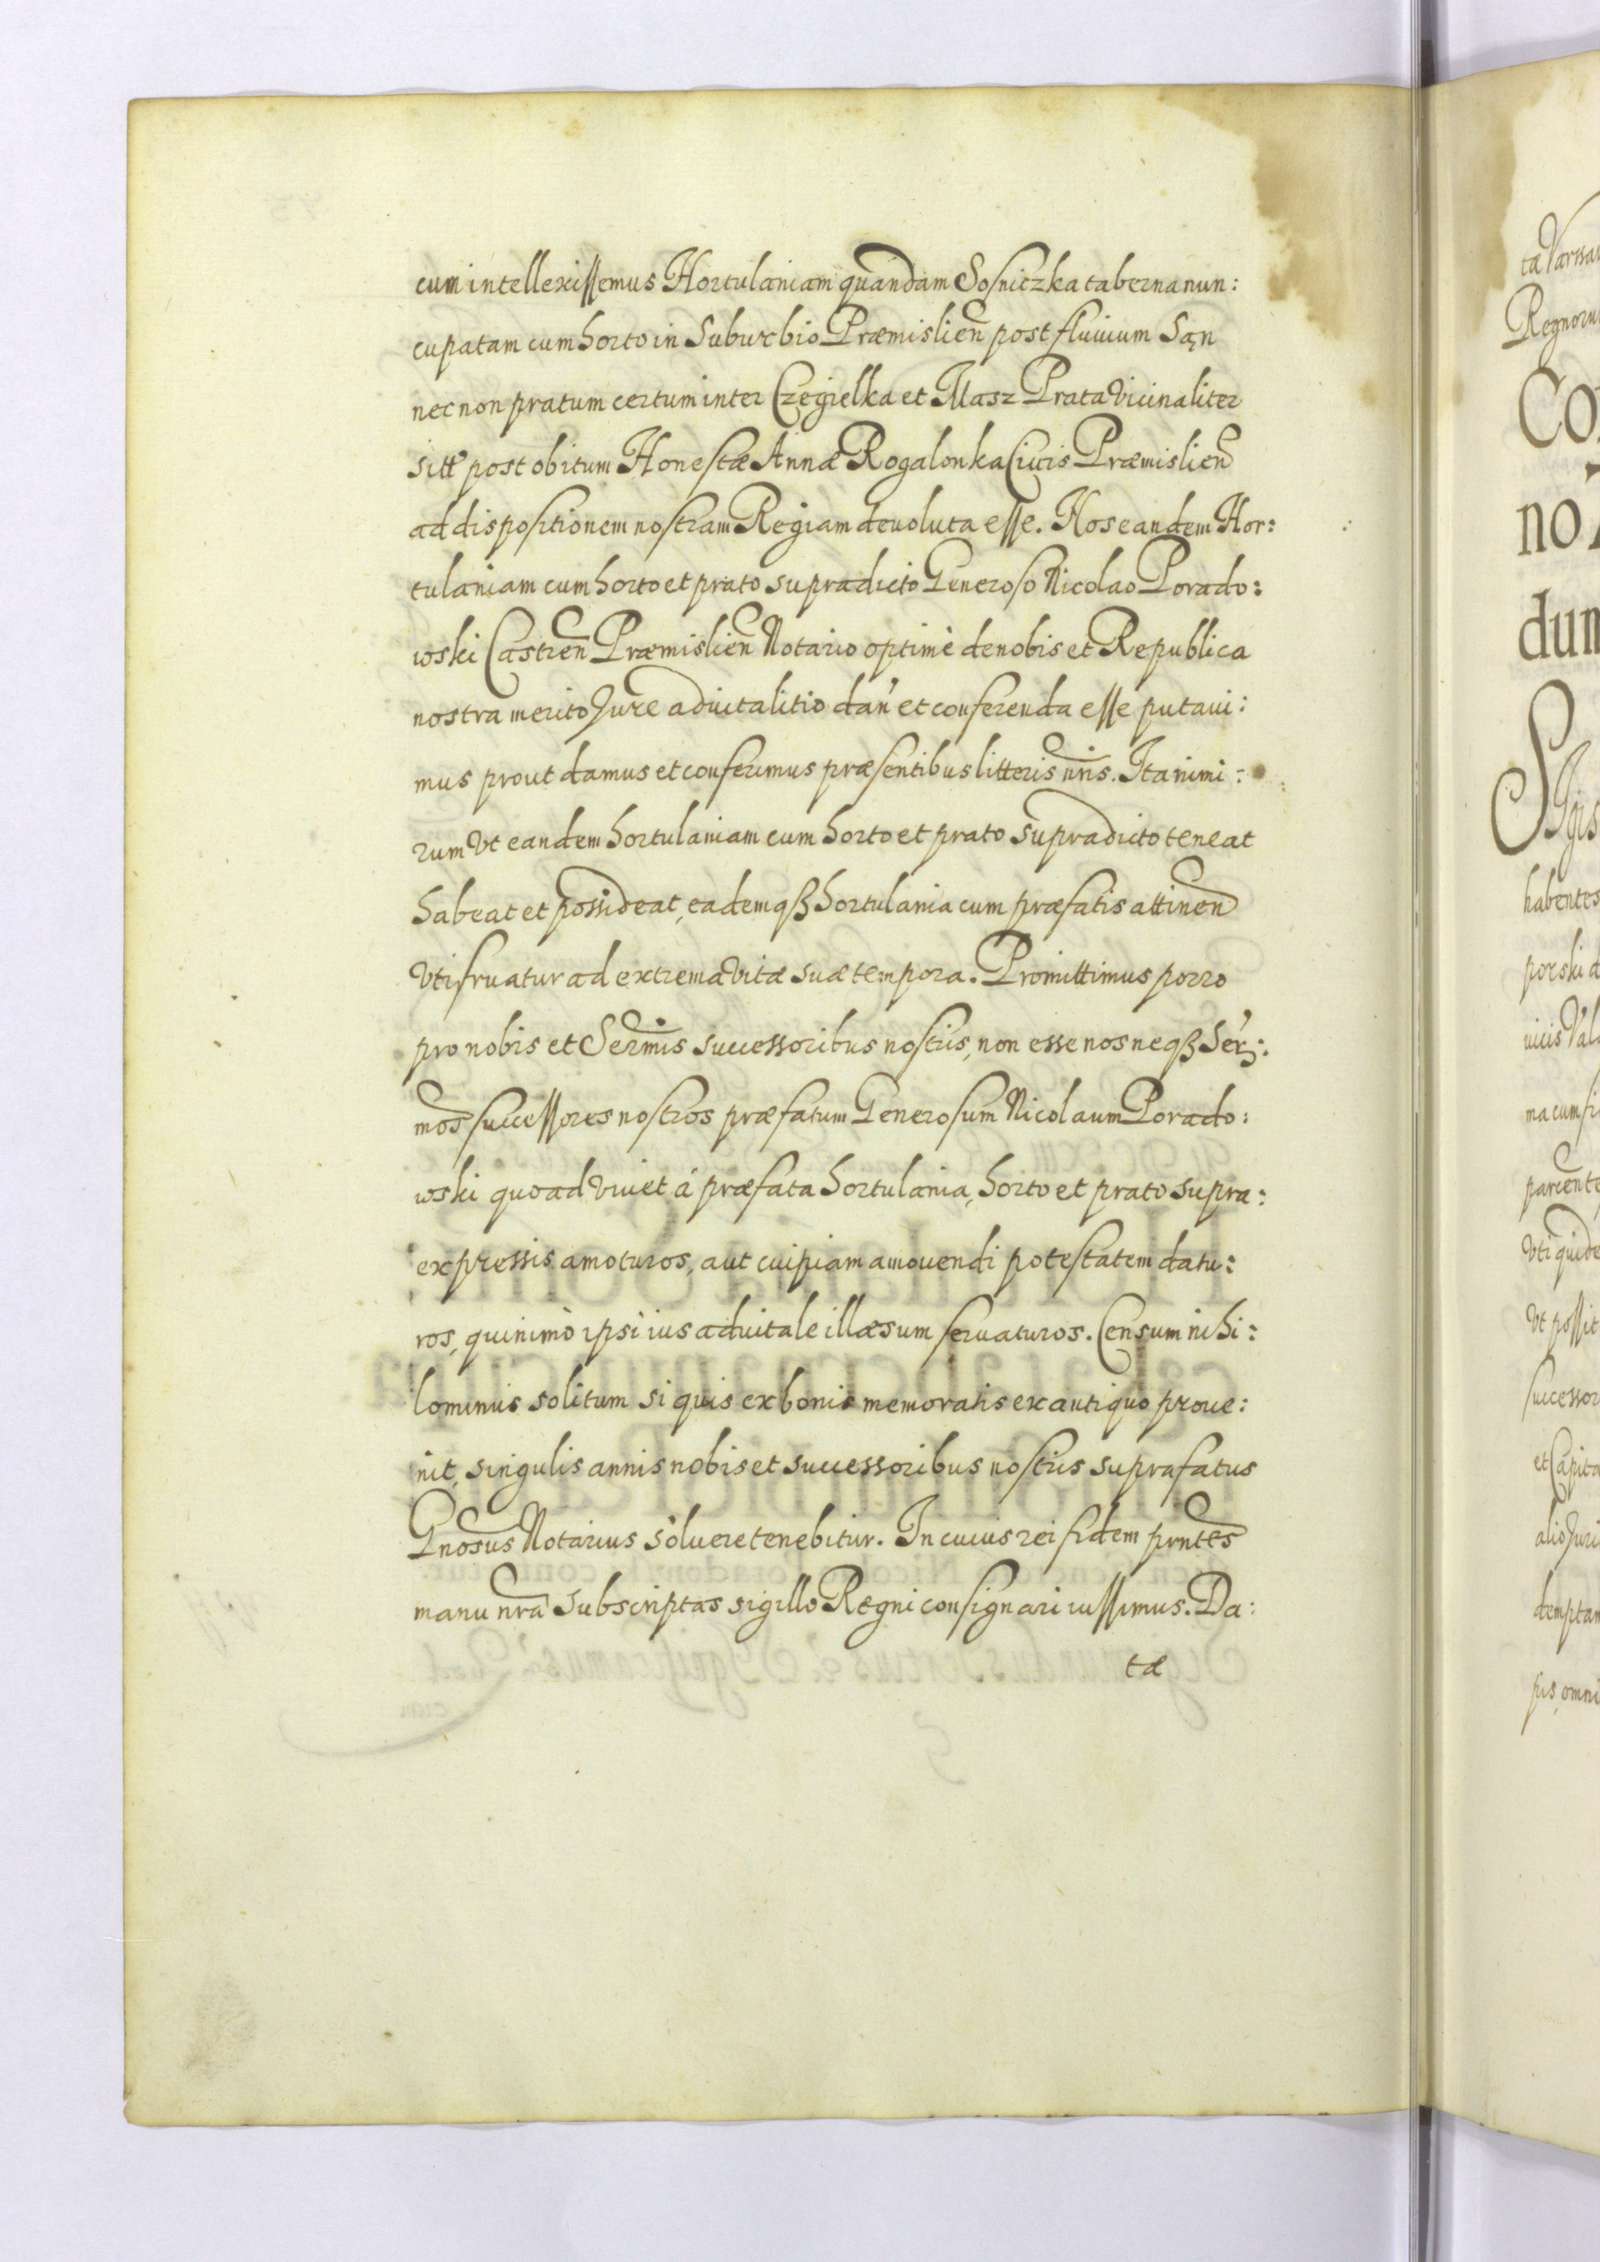 cum intellexissemus Hortulaniam quandam Sosniczka taberna nun:
cupatam cum horto in Suburbio Præmislien̄ post fluvium San
nec non pratum certum inter Czegielka et Masz Prata Vicinaliter
sitt post obitum Honestæ Annæ Rogalonka Civis Præmislien̄
ad dispositionem nostram Regiam devoluta esse. Nos eandem Hor:
tulaniam cum horto et prato supradicto Generoso Nicolao Porado:
wski Castren̄ Præmislien̄ Notario optimè de nobis et Republica
nostra merito Jure advitalitio dan̄ et conferenda esse putavi:
mus prout damus et conferimus præsentibus litteris nr̄is. Ita nimi:
rum Ut eandem hortulaniam cum horto et prato supradicto teneat
habeat et possideat, eademqß hortulania cum præfatis attinen̄
Utifruatur ad extrema Vitæ suæ tempora. Promittimus porro
pro nobis et Serm̄is successoribus nostris, non esse nos neqß Ser̄:
mos successores nostros præfatum Generosum Nicolaum Porado:
wski quoad Vivet á præfata hortulania, horto et prato supra:
expressis amoturos, aut cuipiam amovendi potestatem datu:
ros, quinimò ipsi ius advitale illæsum servaturos. Censum nihi:
lominus solitum si quis ex bonis memoratis ex antiquo prove:
nit, singulis annis nobis et successoribus nostris suprafatus
Gnosus Notarius solvere tenebitur. In cuius rei fidem pn̄tes
manu nr̄a Subscriptas sigillo Regni consignari iussimus. Da:
tæ